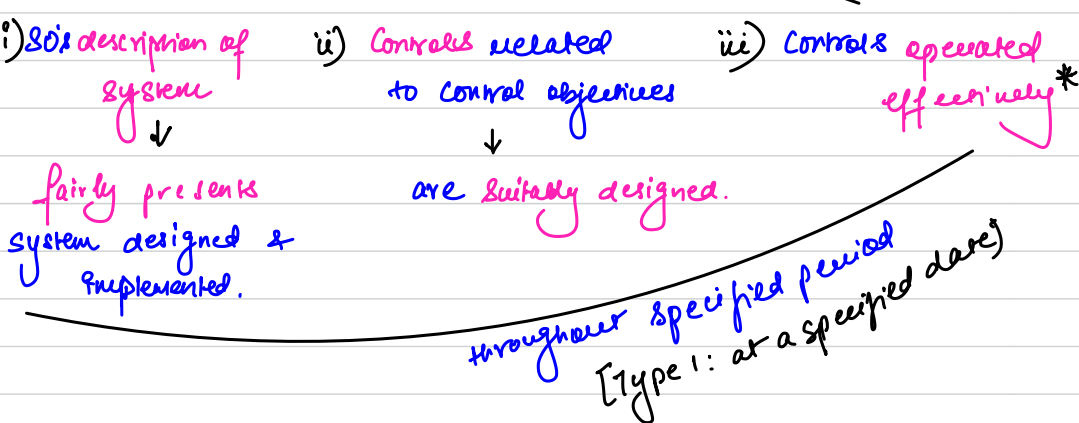 i) SO's description of
system
↓
fairly presents
system designed &
implemented.
ii) Controls related
to control objectives
↓
are suitably designed.
iii) Controls operated
effectively*
throughout specified period
[Type 1: at a specified date]